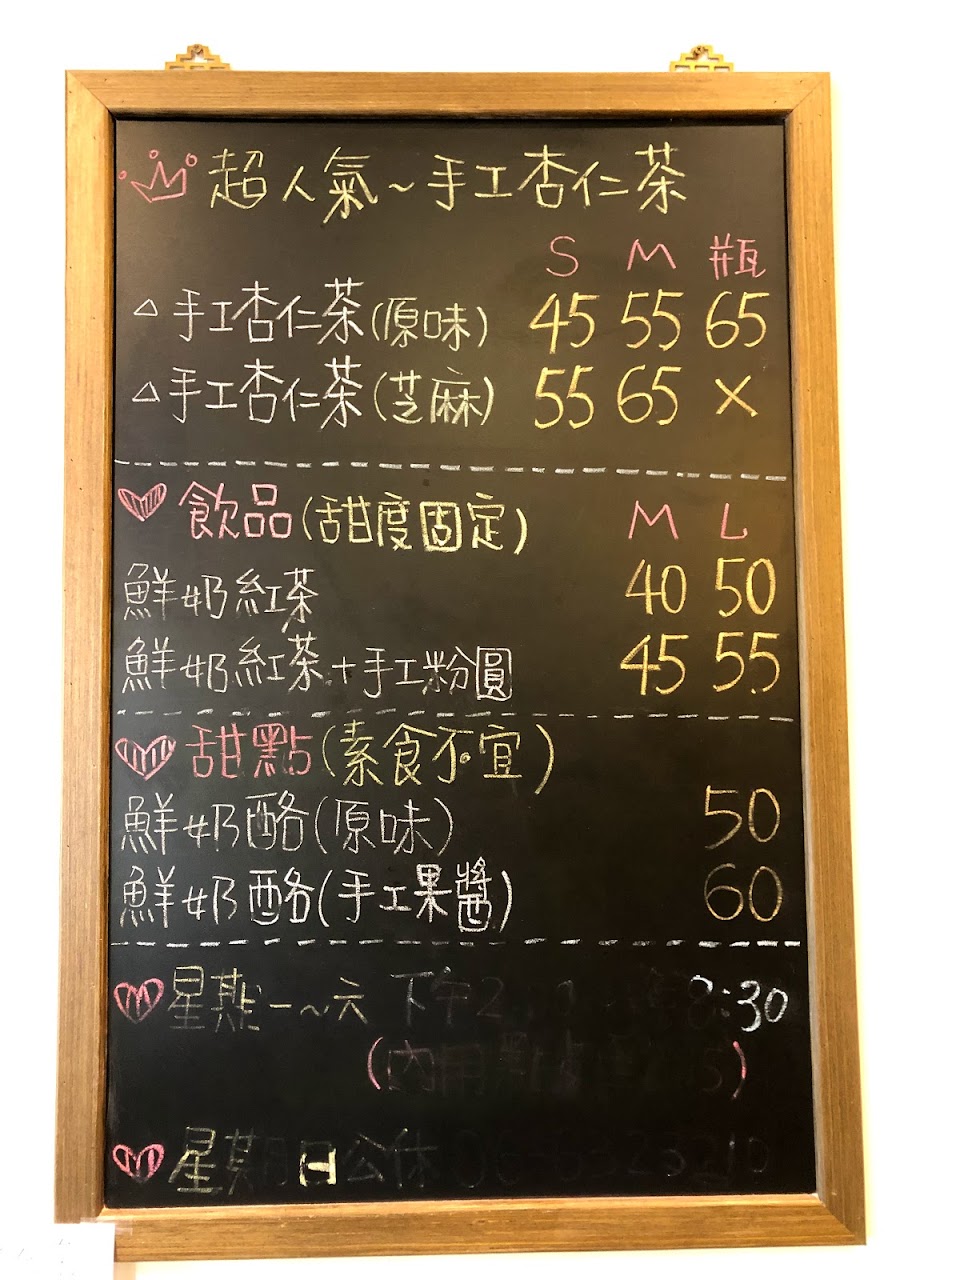 超人氣~手工杏仁茶
S M 瓶
△手工杏仁茶(原味) 45 55 65
△手工杏仁茶(芝麻) 55 65 ×
飲品(甜度固定) M L
鮮奶紅茶 40 50
鮮奶紅茶+手工粉圓 45 55
甜點(素食不宜)
鮮奶酪(原味) 50
鮮奶酪(手工果醬) 60
星期一~六 下午2 :30
(內用)
星期日公休